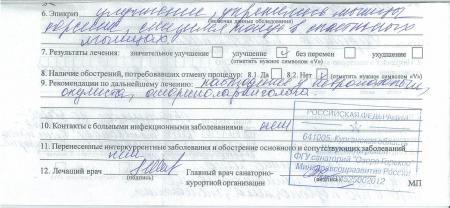 6. Эпикриз улучшение, укрепились мышцы
(включая данные обследования)
7. Результаты лечения: значительное улучшение улучшение V без перемен ухудшение
(отметить нужное символом «V»)
8. Наличие обострений, потребовавших отмену процедур: 8.1 Да 8.2. Нет V
(отметить нужное символом «V»)
9. Рекомендации по дальнейшему лечению:
окулиста, оториноларинголога.
10. Контакты с больными инфекционными заболеваниями нет
11. Перенесенные интеркуррентные заболевания и обострение основного и сопутствующих заболеваний
нет
12. Лечащий врач Главный врач санаторно-
(подпись) курортной организации (подпись) МП
РОССИЙСКАЯ ФЕДЕРАЦИЯ
641005, Курганская область
ФГУ санаторий "Озеро Горькое"
Минздравсоцразвития России